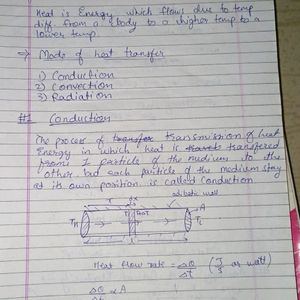 Heat is Energy which flows due to temp
diff. from a body to a higher temp to a
lower temp
⇒ Mode of heat transfer
1) Conduction
2) Convection
3) Radiation
#1 Conduction
The process of transmission of heat
Energy in which heat is transfered
from 1 particle of the medium to the
other but each particle of the medium stay
at its own position is called Conduction
T dx adibatic wall
TH T T+dT TL A
Heat flow rate = ΔQ/Δt (J/s or watt)
ΔQ/Δt ∝ A